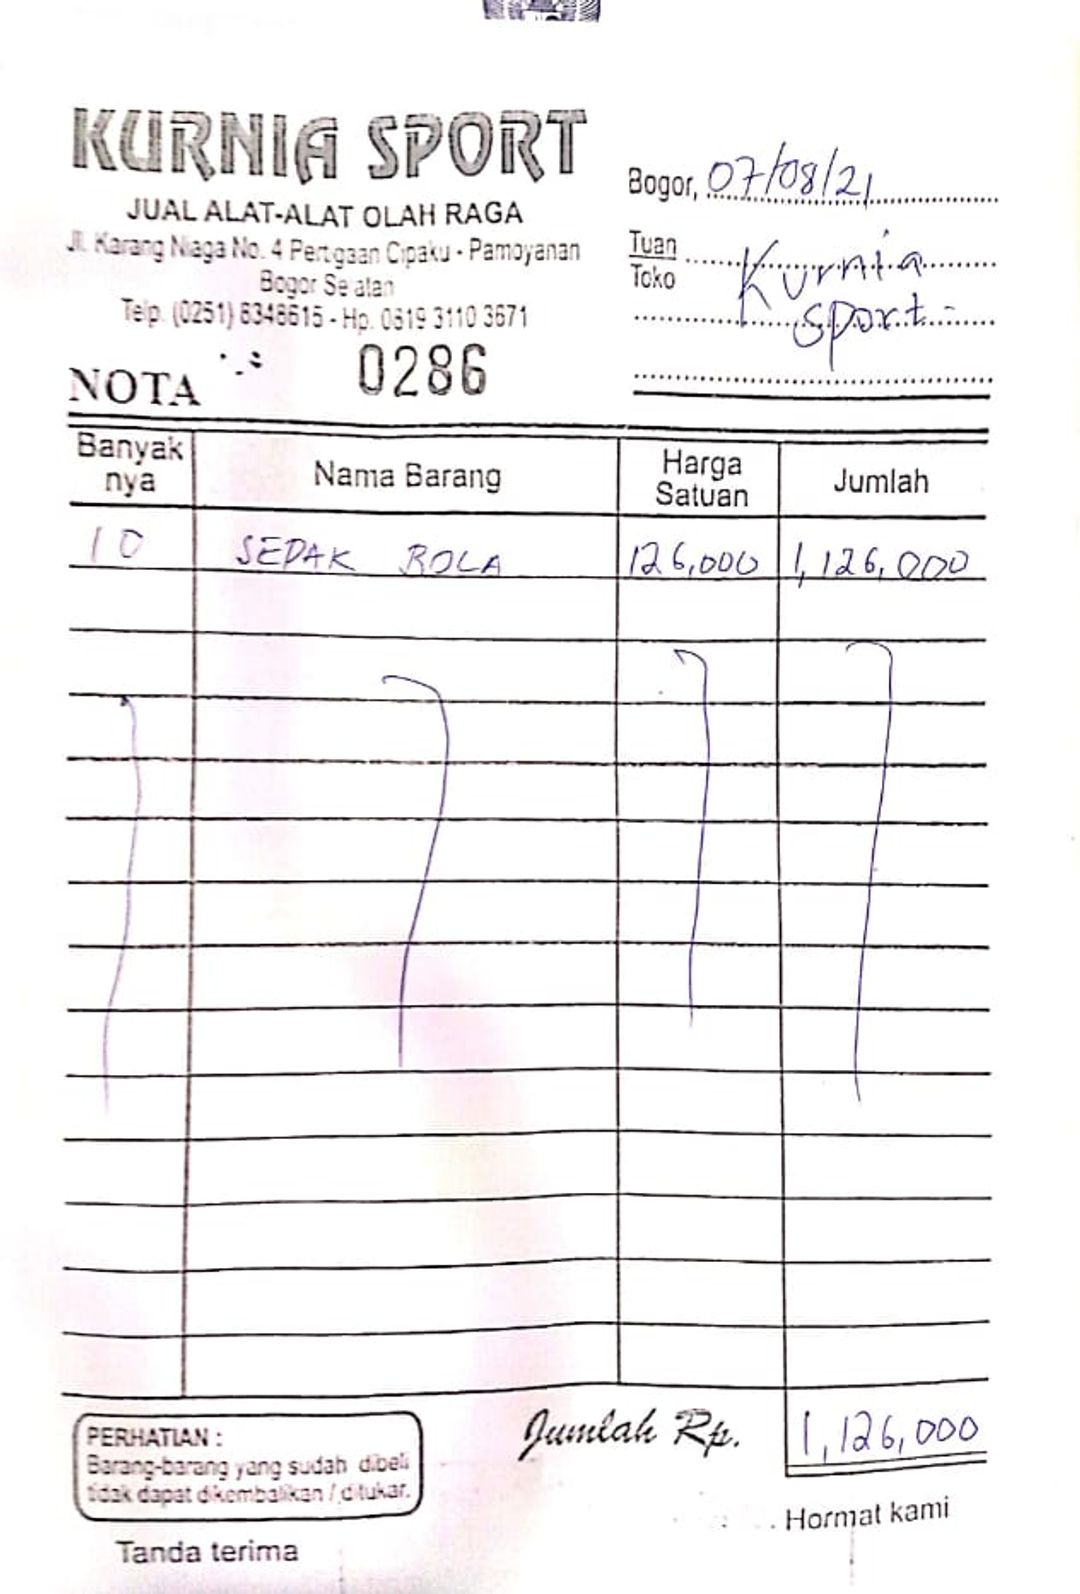 KURNIA SPORT
JUAL ALAT-ALAT OLAH RAGA
Jl. Karang Niaga No. 4 Pertigaan Cipaku - Pamoyanan
Bogor Selatan
Telp. (0251) 8348615 - Hp. 0819 3110 3671
Bogor, 07/08/21
Tuan
Toko
Kurnia
Sport
NOTA 0286
Banyak nya Nama Barang Harga Satuan Jumlah
10 SEPAK BOLA 126,000 1,126,000
Jumlah Rp. 1,126,000
PERHATIAN :
Barang-barang yang sudah dibeli
tidak dapat dikembalikan / ditukar.
Hormat kami
Tanda terima